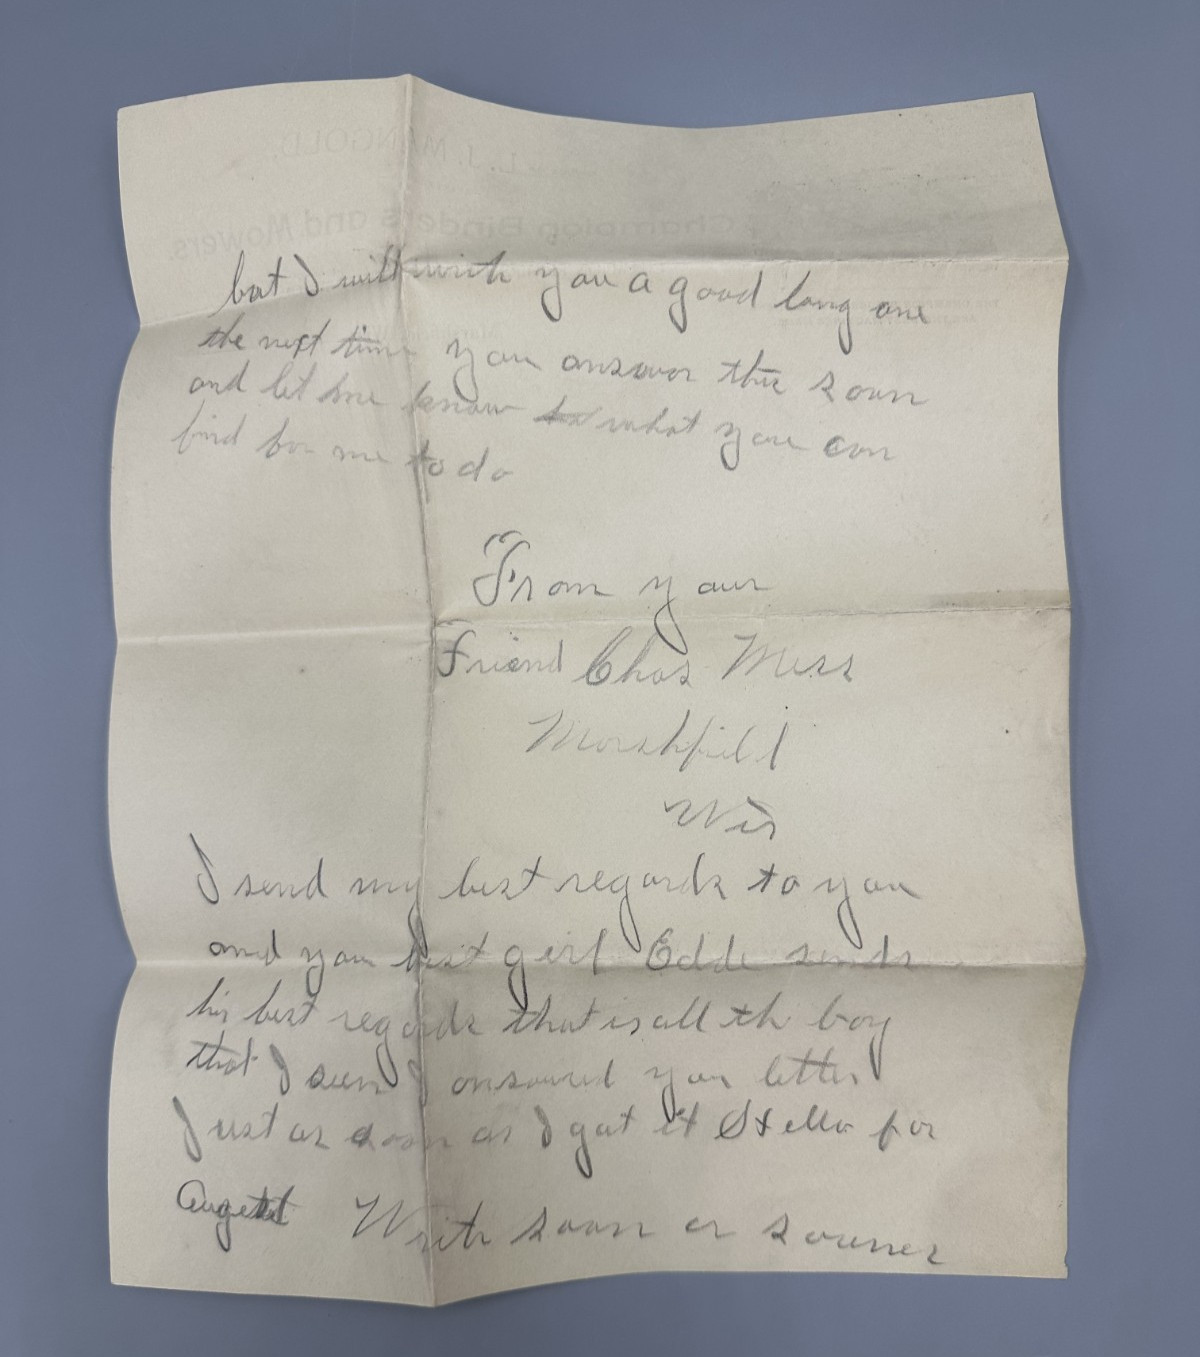 L. J. MANGOLD.
Champion Binders and Mowers.
but I will with you a good long one
the next time you answer this soon
and let me know what you can
find for me to do
From your
Friend Chas Mess
Marshfield
Wis
I send my best regards to you
and you best girl Edde sends
his best regards that is all th boy
that I seen I answured your letter
Just as soon as I got it Stella for
Write soon or sooner